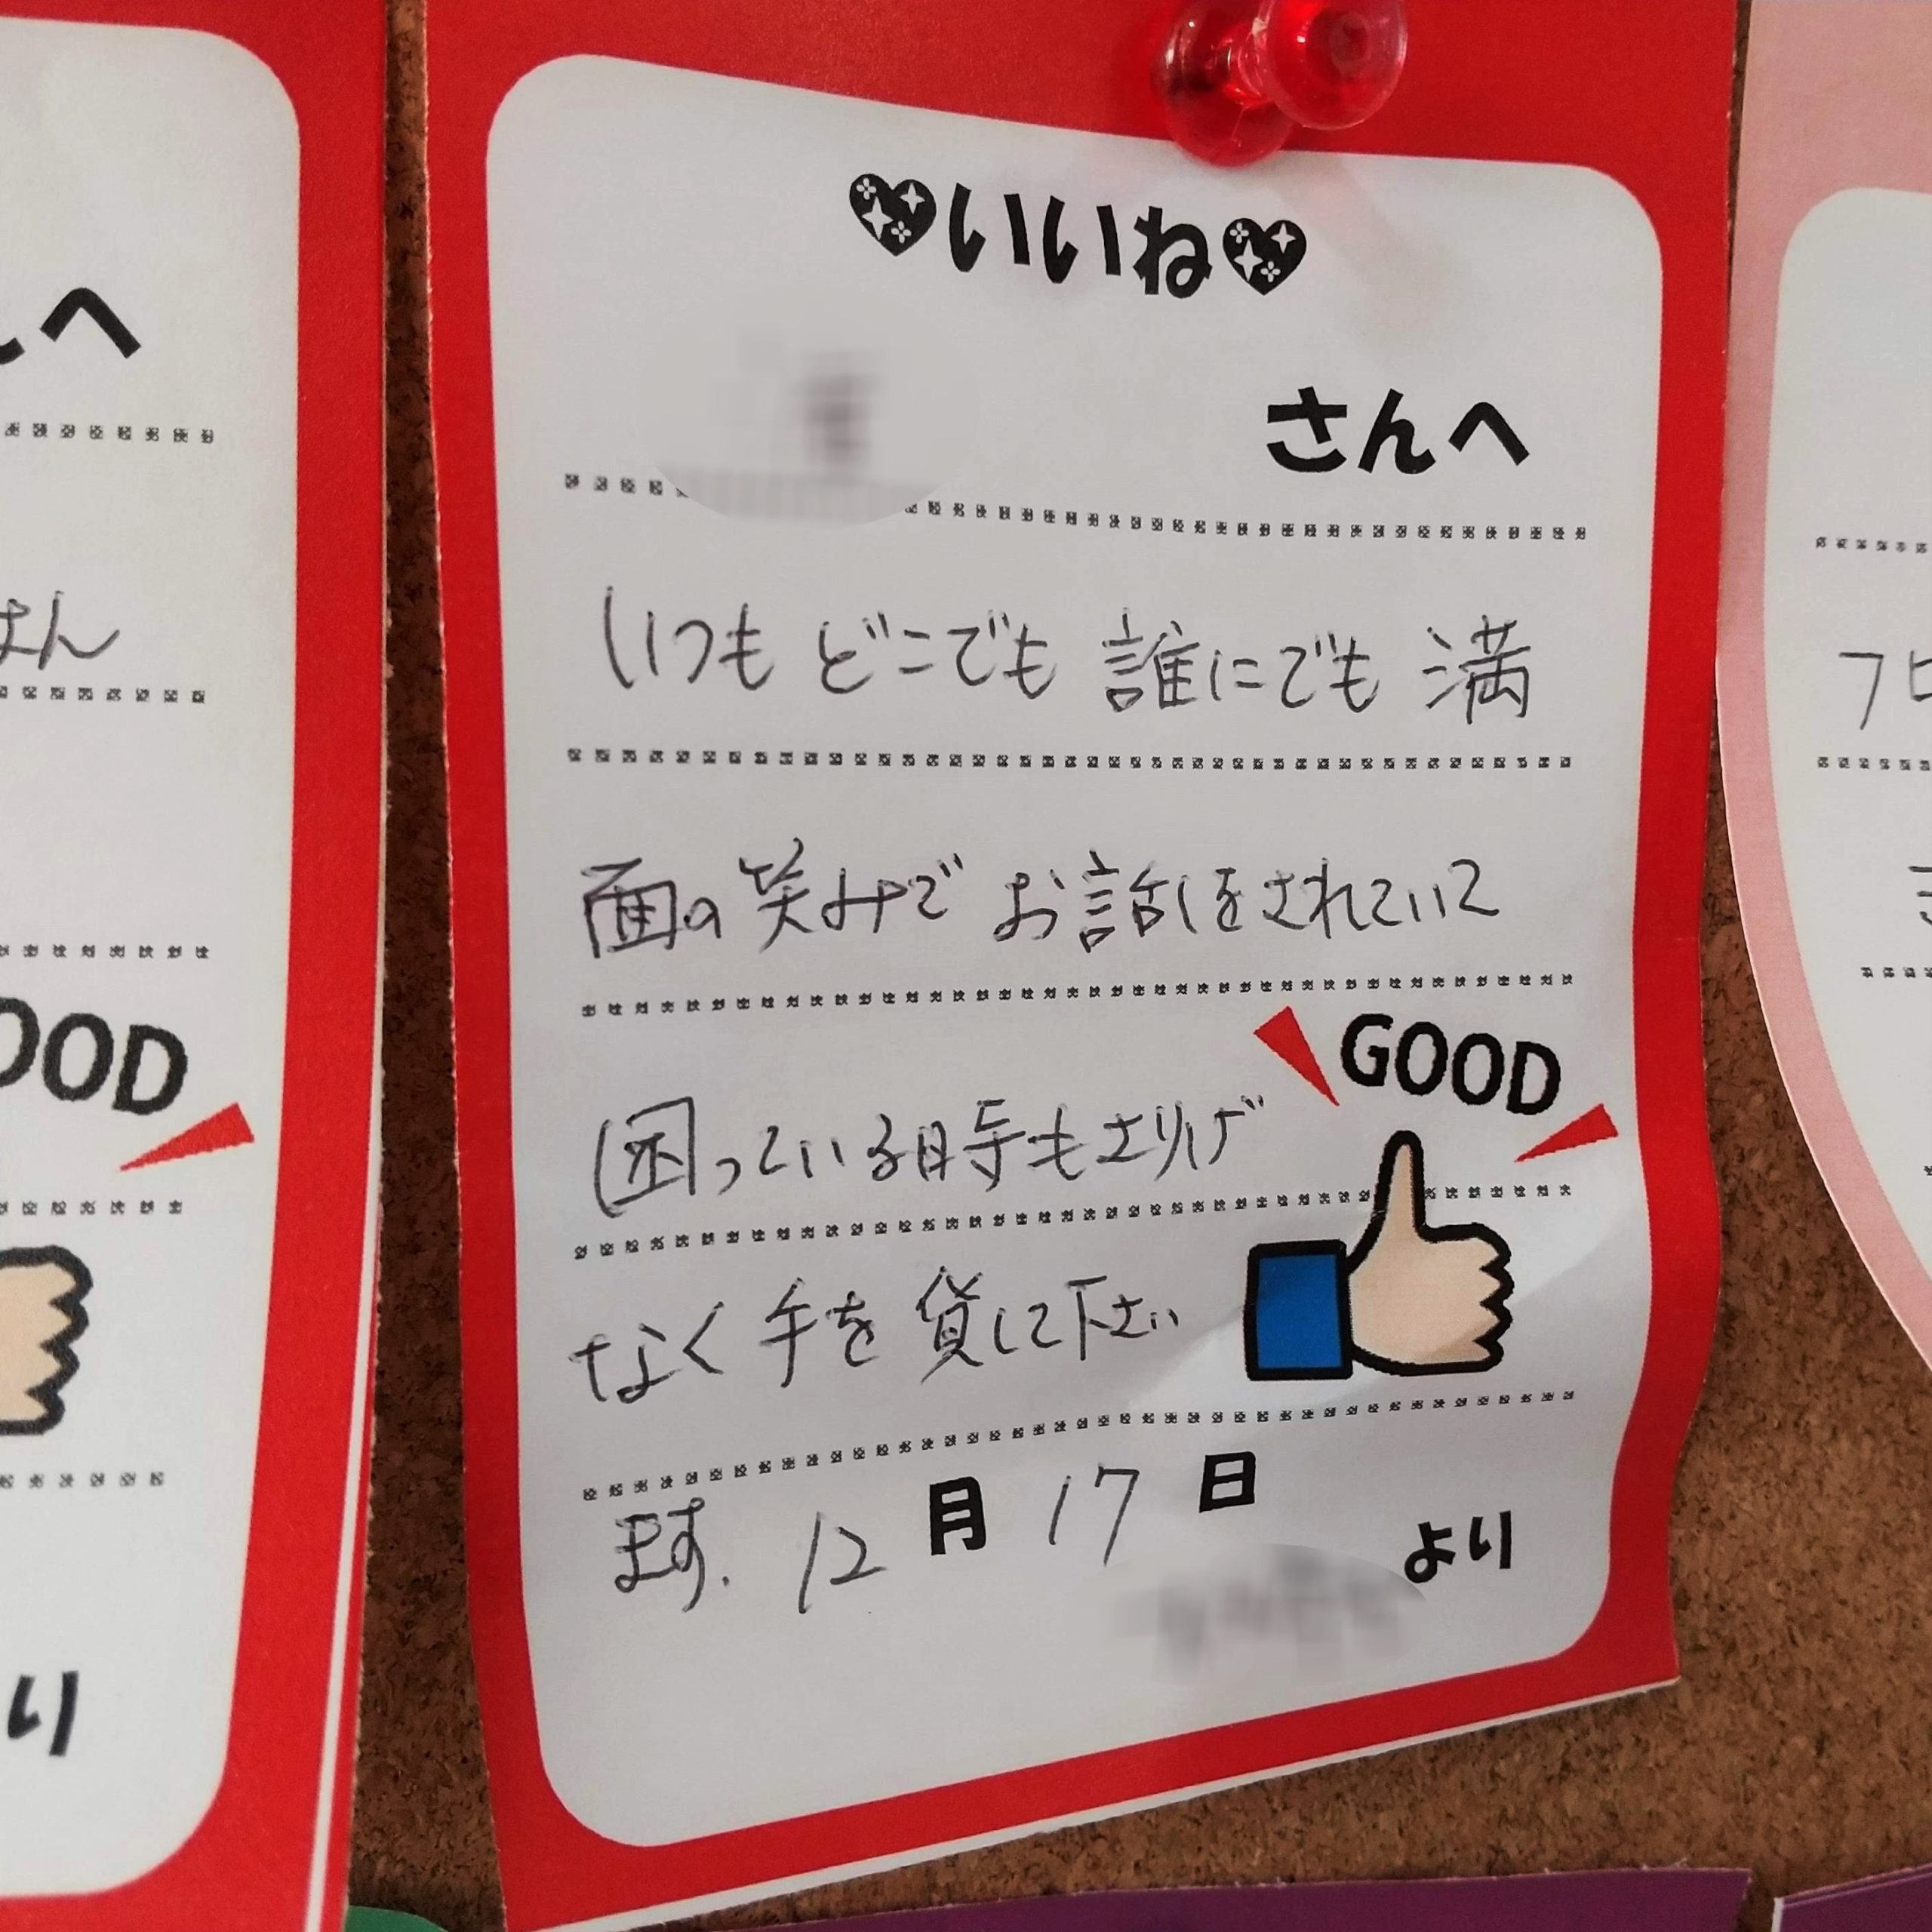 いいね
さんへ
いつもどこでも誰にでも満
面の笑みでお話しをされていて
困っている時もさりげ
なく手を貸して下さい
ます. 12月17日
より
GOOD
へ
OOD
り